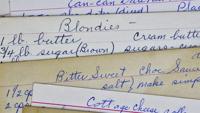 Can-can
(diced)
Blondies -
1 lb butter cream butte
3/4 lb sugar (Brown) sugars
Bitter Sweet Choc Sauce
salt) make simp
1 1/2 cp
2 cp
Cottage Cheese